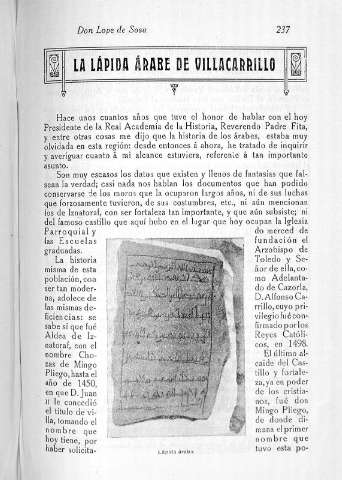 Don Lope de Sosa
237
LA LÁPIDA ÁRABE DE VILLACARRILLO
Hace unos cuantos años que tuve el honor de hablar con el hoy
Presidente de la Real Academia de la Historia, Reverendo Padre Fita,
y entre otras cosas me dijo que la historia de los árabes, estaba muy
olvidada en esta región: desde entonces á ahora, he tratado de inquirir
y averiguar cuanto á mi alcance estuviera, referente á tan importante
asunto.
Son muy escasos los datos que existen y llenos de fantasías que fal-
sean la verdad; casi nada nos hablan los documentos que han podido
conservarse de los moros que la ocuparon largos años, ni de sus luchas
que forzosamente tuvieron, de sus costumbres, etc., ni aún mencionan
los de Iznatoraf, con ser fortaleza tan importante, y que aún subsiste; ni
del famoso castillo que aquí hubo en el lugar que hoy ocupan la Iglesia
Parroquial y
las Escuelas
graduadas.
La historia
misma de esta
población, con
ser tan moder-
na, adolece de
las mismas de-
ficiencias: se
sabe sí que fué
Aldea de Iz-
natoraf, con el
nombre Cho-
zas de Mingo
Pliego, hasta el
año de 1450,
en que D. Juan
II le concedió
el título de vi-
lla, tomando el
nombre que
hoy tiene, por
haber solicita-
Lápida árabe.
do merced de
fundación el
Arzobispo de
Toledo y Se-
ñor de ella, co-
mo Adelanta-
do de Cazorla,
D. Alfonso Ca-
rrillo, cuyo pri-
vilegio fué con-
firmado por los
Reyes Católi-
cos, en 1498.
El último al-
caide del Cas-
tillo y fortale-
za, ya en poder
de los cristia-
nos, fué don
Mingo Pliego,
de donde di-
mana el primer
nombre que
tuvo esta po-